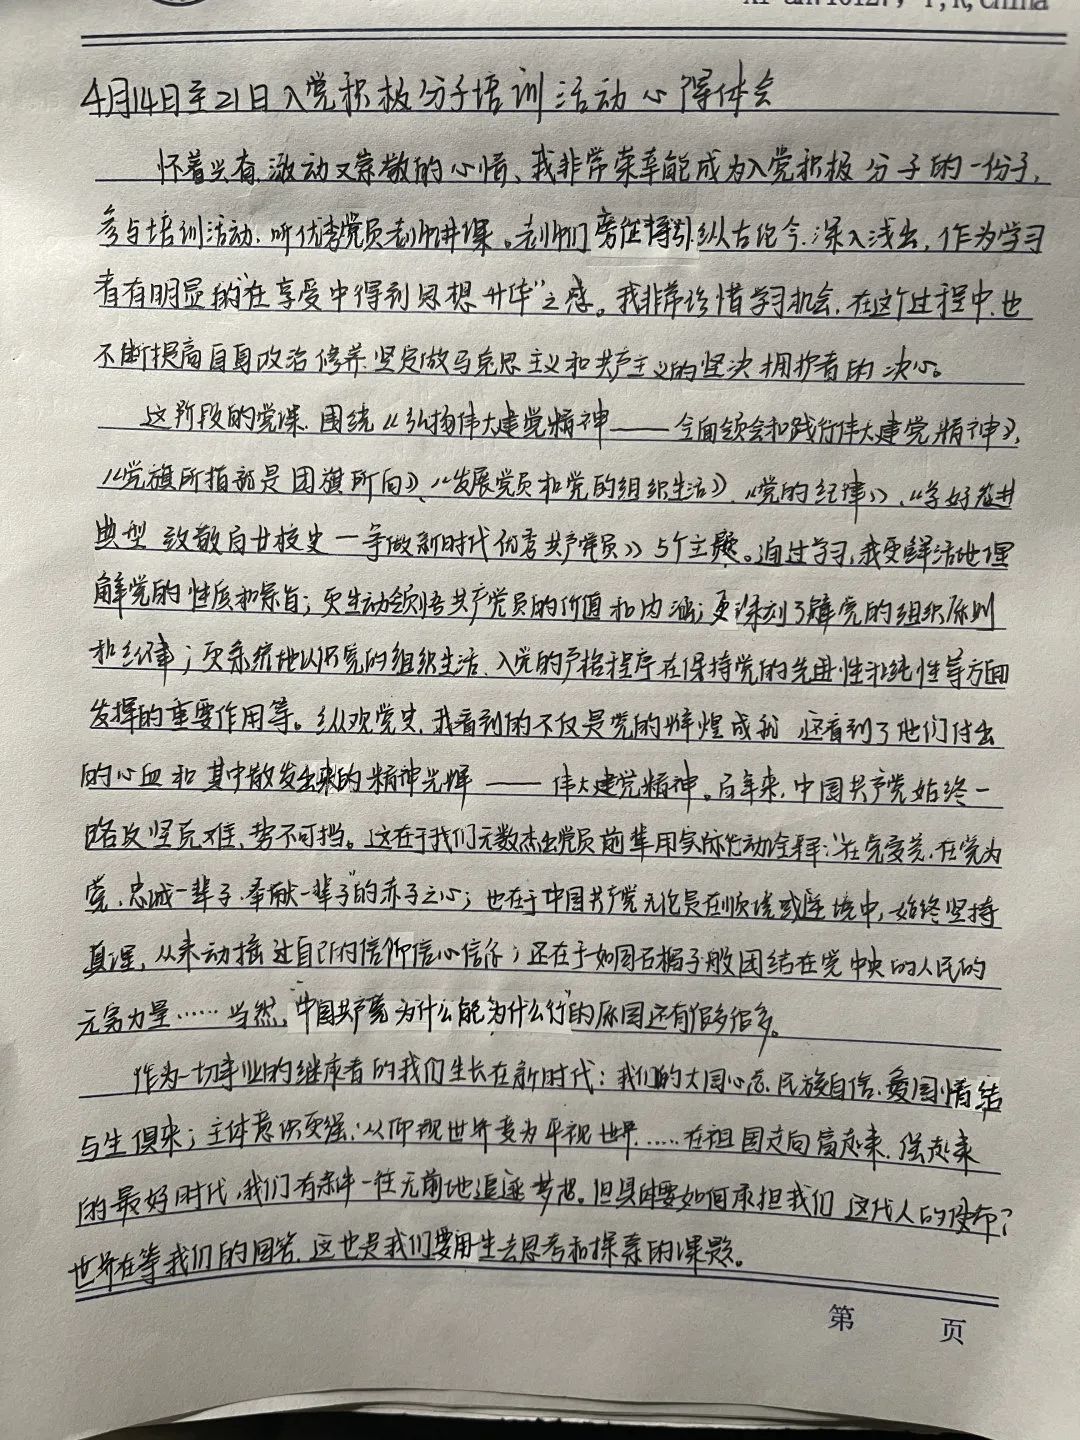 Xi'an.710127, P,R,China
4月14日至21日入党积极分子培训活动心得体会
怀着兴奋、激动又崇敬的心情、我非常荣幸能成为入党积极分子的一份子,
参与培训活动、听优秀党员老师讲课。老师们旁征博引纵古论今、深入浅出，作为学习
者有明显的"在享受中得到思想升华"之感。我非常珍惜学习机会，在这个过程中，也
不断提高自身政治修养、坚定做马克思主义和共产主义的坚决拥护者的决心。
这阶段的党课，围绕《弘扬伟大建党精神——全面领会和践行伟大建党精神》、
《党旗所指就是团旗所向》、《发展党员和党的组织生活》、《党的纪律》、《学好先进
典型 致敬自廿校史—争做新时代优秀共产党员》5个主题。通过学习，我更鲜活地理
解党的性质和宗旨；更生动领悟共产党员的价值和内涵；更深刻了解党的组织原则
和纪律；更系统地认识党的组织生活、入党的严格程序在保持党的先进性和纯性等方面
发挥的重要作用等。纵观党史，我看到的不仅是党的辉煌成就 还看到了他们付出
的心血和其中散发出来的精神光辉——伟大建党精神。百年来，中国共产党始终一
路攻坚克难、势不可挡。这在于我们无数杰出党员前辈用实际行动诠释："在党爱党、在党为
党、忠诚一辈子、奉献一辈子"的赤子之心；也在于中国共产党无论是在顺境或逆境中，始终坚持
真理，从未动摇过自己的信仰信心信念；还在于如同石榴子般团结在党中央的人民的
无穷力量……当然，"中国共产党为什么能，为什么行"的原因还有很多很多。
作为一切事业的继承者的我们生长在新时代：我们的大国心态、民族自信、爱国情结
与生俱来；主体意识更强；从仰视世界变为平视世界……在祖国走向富起来、强起来
的最好时代，我们有条件一往无前地追逐梦想。但具体要如何承担我们这代人的使命？
世界在等我们的回答，这也是我们要用一生去思考和探索的课题。
第 页